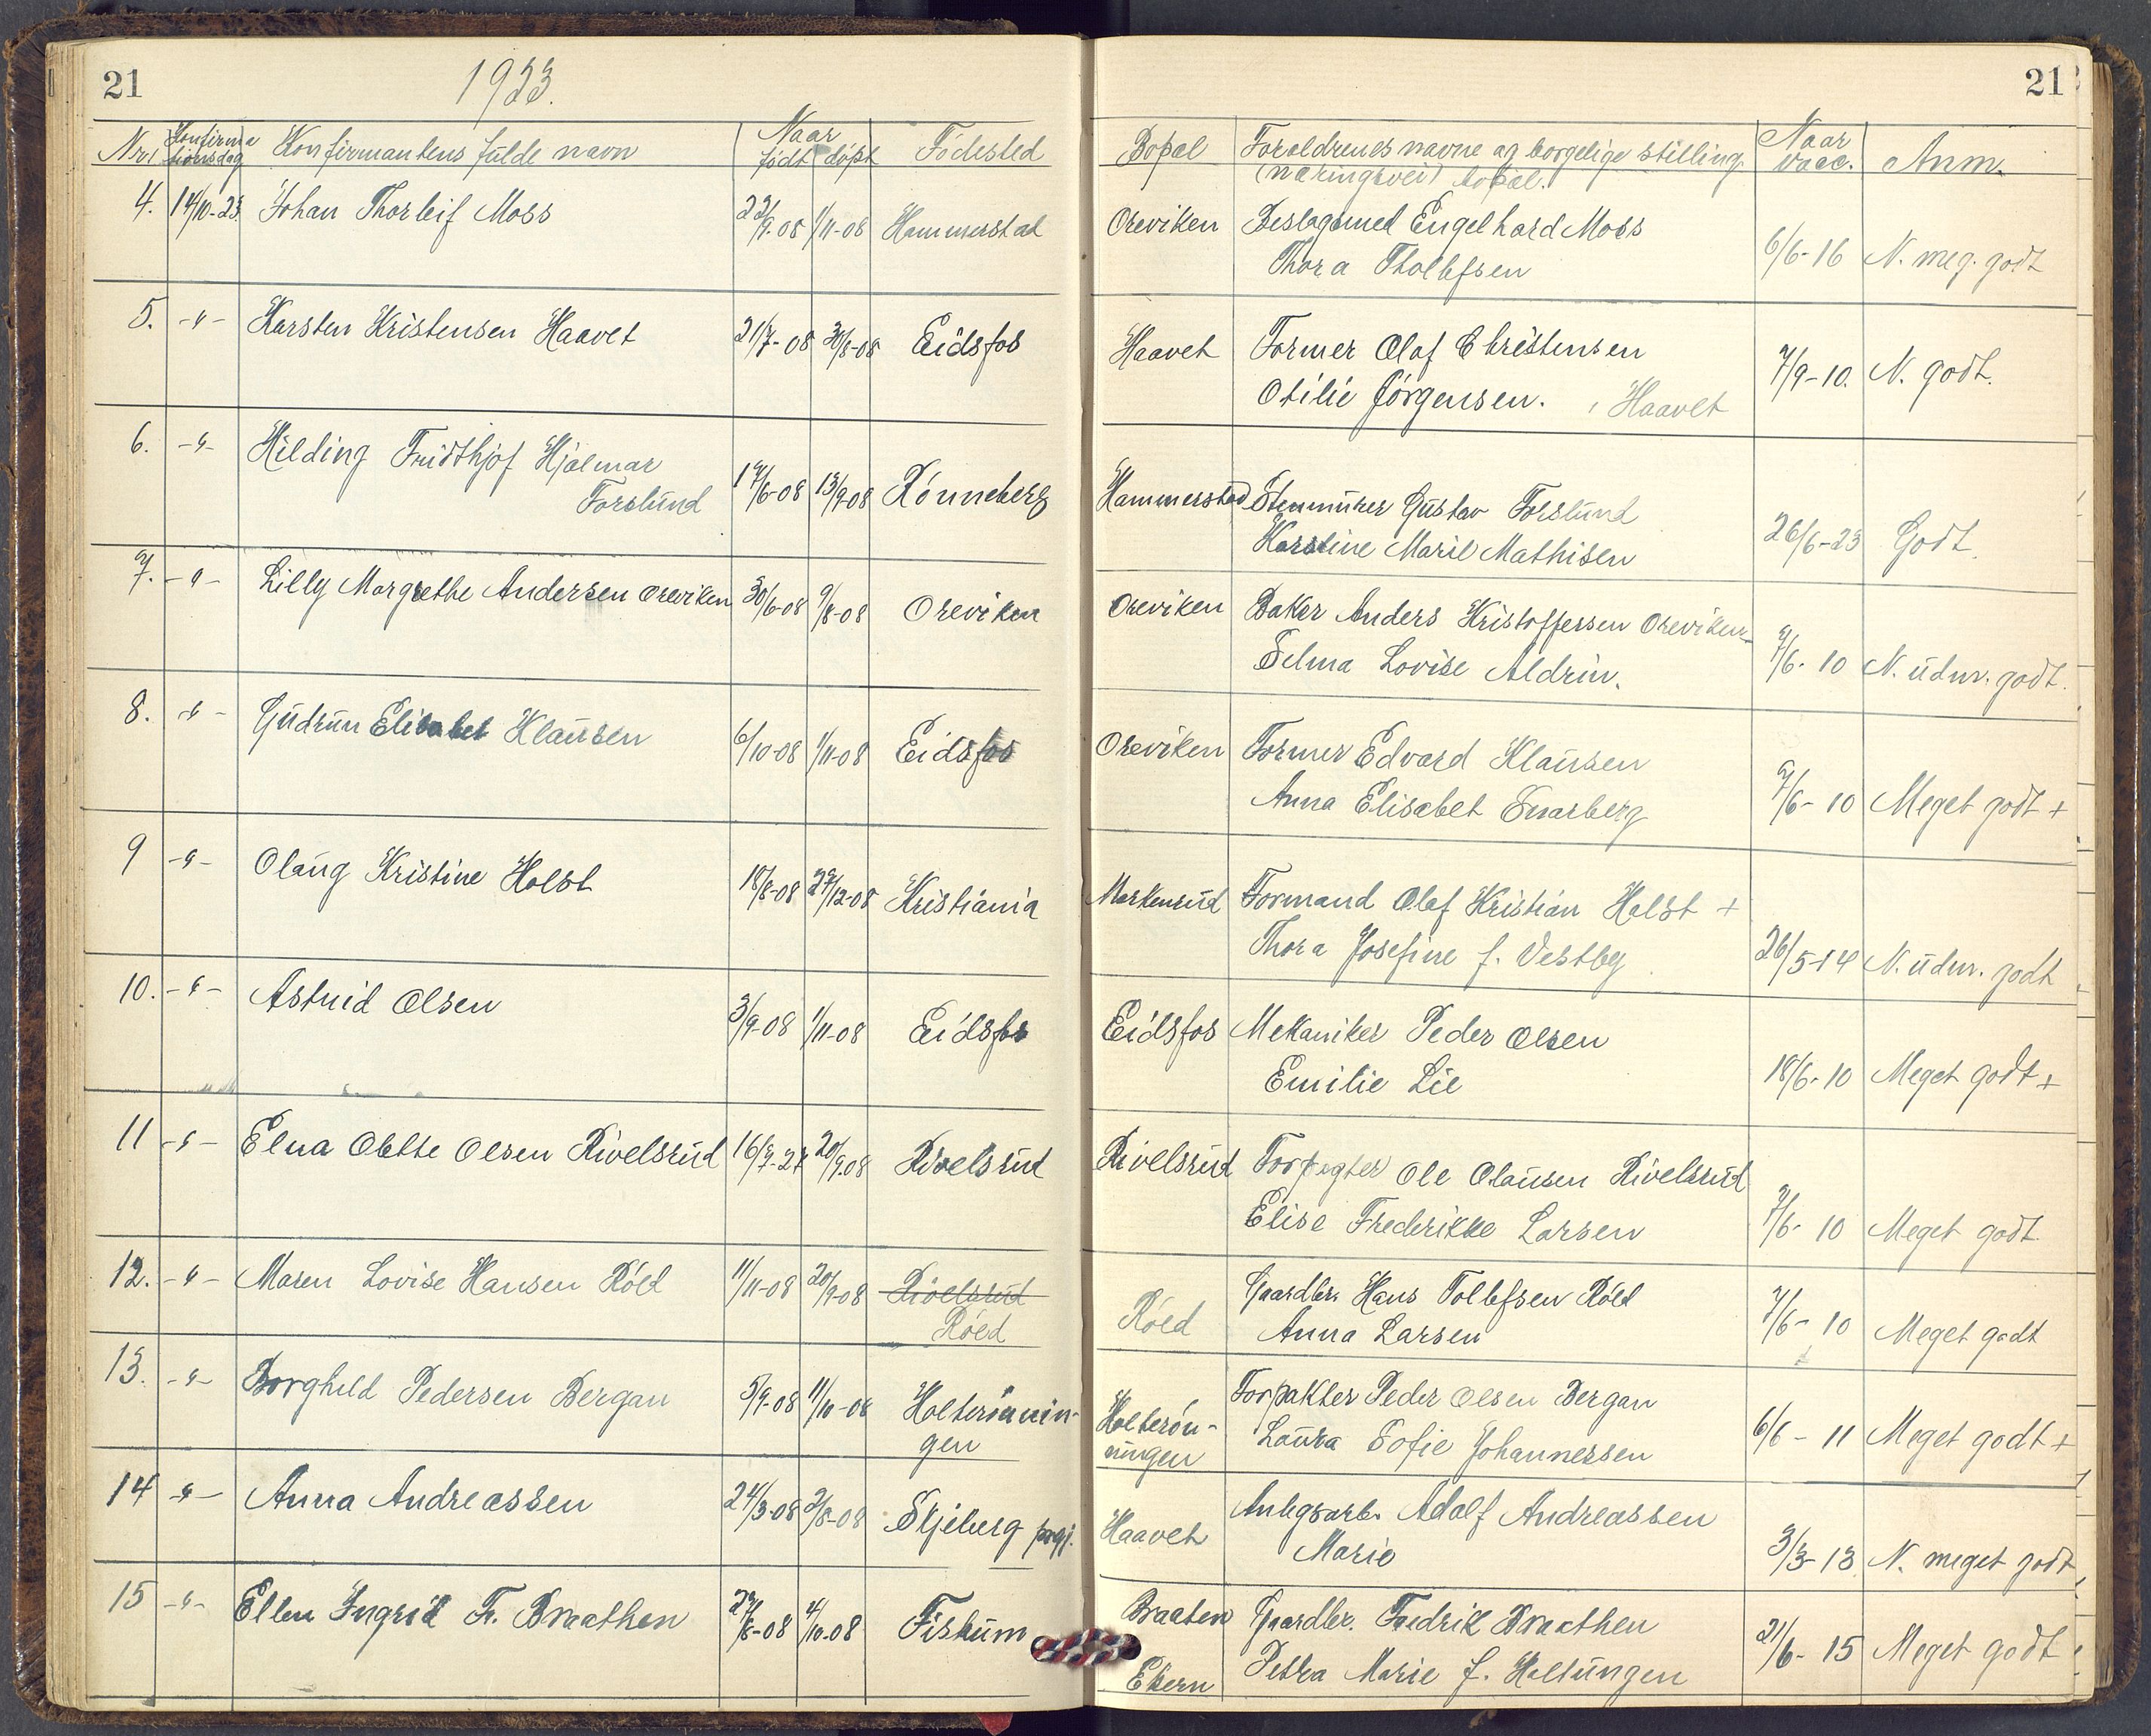 21
1923.
21
Nr. Konfirmationsdag Konfirmantens fulde navn Naar født døpt Fødested Bopæl Forældrenes navne og borgelige stilling (næringsvei) bopæl. Naar vacc. Anm.
4. 14/10-23 Johan Thorleif Moss 22/9-08 1/11-08 Hammerstad Oreviken Beslagsmed Engelhard Moss
Thora Thollefsen 6/6-16 N. meg. godt
5. -"- Karsten Kristensen Haavet 21/7-08 30/8-08 Eidsfos Haavet Former Olaf Christensen
Otilie Jørgensen. Haavet 7/9-10. N. godt.
6. -"- Hilding Fridthjof Hjalmar
Forslund 17/6-08 13/9-08 Rønneberg Hammerstad Stenmurer Gustav Forslund
Karstine Marie Mathisen 26/6-23 Godt.
7. -"- Lilly Margrethe Andersen Oreviken 30/6-08 9/8-08 Oreviken Oreviken Baker Anders Kristoffersen Oreviken
Selma Lovise Aldrin. 7/6-10 N. udm. godt.
8. -"- Gudrun Elisabet Klausen 6/10-08 1/11-08 Eidsfos Oreviken Former Edvard Klausen
Anna Elisabet Snarberg 7/6-10 Meget godt +
9 -"- Olaug Kristine Holst 18/8-08 27/12-08 Kristiania Markensrud Formand Olaf Kristian Holst +
Thora Josefine f. Vestby 26/5-14 N. udm. godt
10. -"- Astrid Olsen 3/9-08 1/11-08 Eidsfos Eidsfos Mekaniker Peder Olsen
Emilie Lie 18/6-10 Meget godt +
11 -"- Elna Olette Olsen Rivelsrud 16/7-27 20/9-08 Rivelsrud Rivelsrud Forpagter Ole Olausen Rivelsrud
Elise Frederikke Larsen 7/6-10 Meget godt.
12. -"- Maren Lovise Hansen Røed 11/11-08 20/9-08 Rivelsrud
Røed Røed Gaardbr. Hans Tollefsen Røed
Anna Larsen 7/6-10 Meget godt
13. -"- Borghild Pedersen Bergan 5/9-08 11/10-08 Holterønnin-
gen Holterøn-
ningen Forpakter Peder Olsen Bergan
Laura Sofie Johannessen 6/6-11 Meget godt +
14 -"- Anna Andreassen 24/3-08 2/8-08 Skjeberg prgj. Haavet Anlegsarb. Adolf Andreassen
Marie 3/3-13 N. meget godt
15 -"- Ellen Ingrid Fr. Braathen 27/8-08 4/10-08 Fiskum Braaten
Ekern Gaardbr. Fredrik Braathen
Petra Marie f. Haltungen 21/6-15 Meget godt